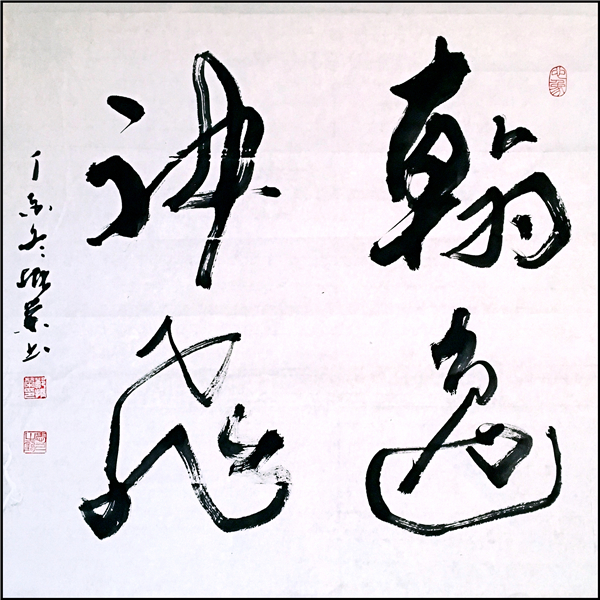 翰逸
神飛
丁亥冬
書